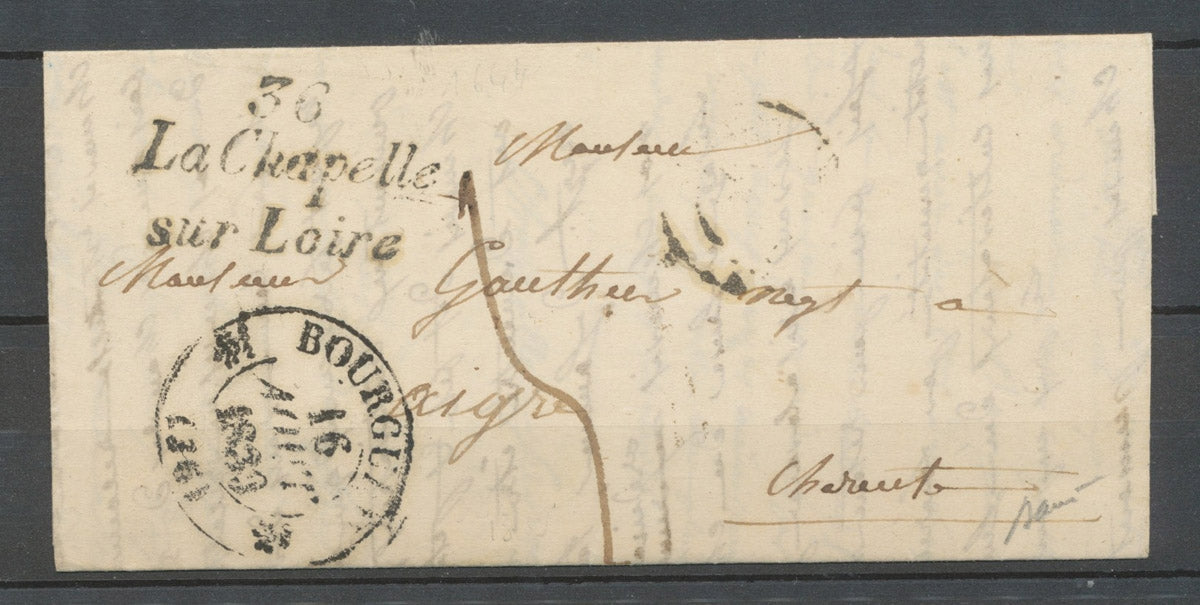 36
La Chapelle
sur Loire
Monsieur
Monsieur Gauthier negt a
aigre
Charente
BOURGUEIL
16
(36)